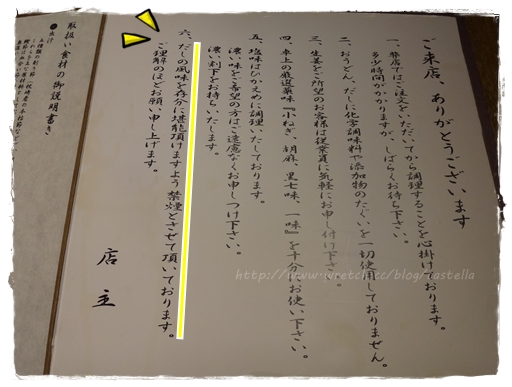 ご来店、ありがとうございます
一、弊店ではご注文をいただいてから調理することを心掛けております。
多少時間がかかりますが、しばらくお待ち下さい。
二、おうどん、だしに化学調味料や添加物のたぐいを一切使用しておりません。
三、生姜をご所望のお客様は従業員に気軽にお申し付け下さい。
四、卓上の厳選薬味『小ねぎ、胡麻、黒七味、一味』を十分にお使い下さい。
五、塩味はひかえめに調理いたしております。
濃い味をご希望の方はご遠慮なくお申しつけ下さい。
濃い割下をお持ちいたします。
六、だしの風味を存分に堪能頂けますよう禁煙とさせて頂いております。
ご理解のほどお願い申し上げます。
店主
取扱い食材の御説明書き
●出汁
http://www.wretch.cc/blog/castella